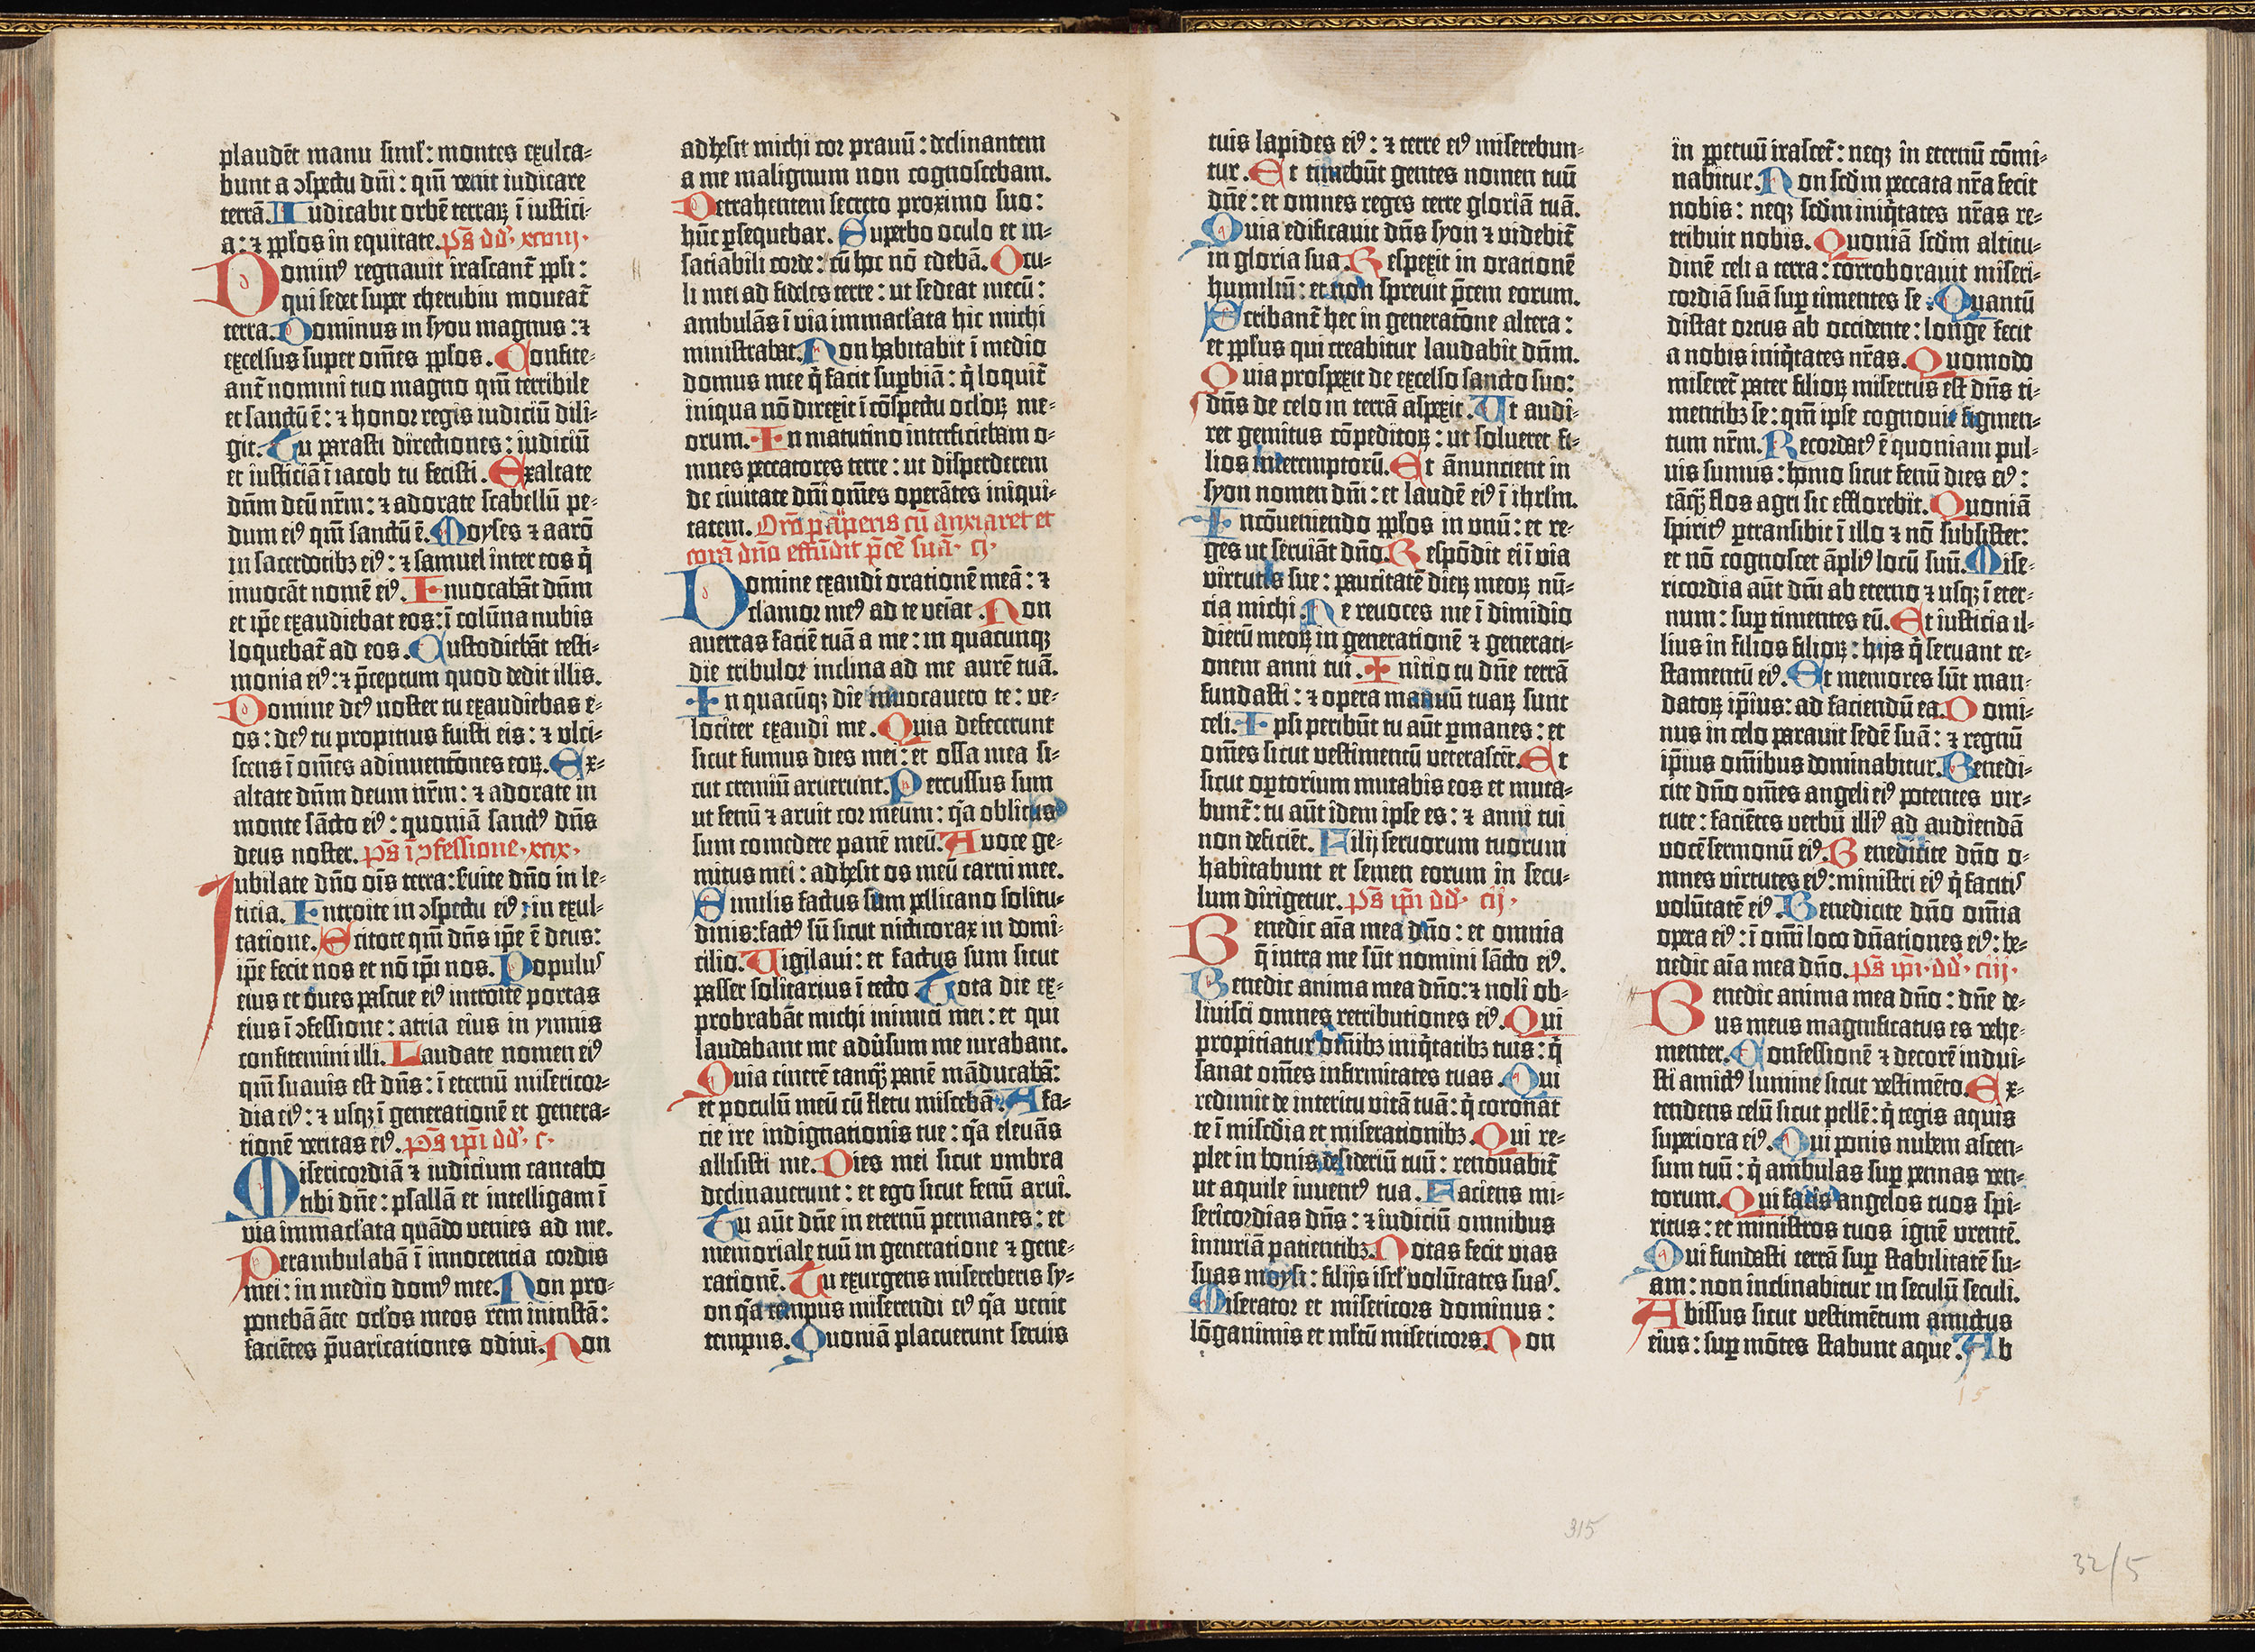 plaudēt manu siml̄: montes exulta=
bunt a ↄspectu dn̄i: qm̄ venit iudicare
terrā. Iudicabit orbē terrarꝫ ī iusticia-
a: ⁊ ppl̄os in equitate. Ps̄ dd̄. xcviij.
Dominꝰ regnauit irascant̄ ppl̄i:
qui sedet super cherubin moueat̄
terra. Dominus in syon magnus: ⁊
excelsus super om̄es ppl̄os. Confite=
ant̄ nomini tuo magno qm̄ terribile
et sanctū ē: ⁊ honor regis iudiciū dili-
git. Tu parasti directiones: iudiciū
et iusticiā ī iacob tu fecisti. Exaltate
dn̄m deū nr̄m: ⁊ adorate scabellū pe=
dum eiꝰ qm̄ sanctū ē. Moyses ⁊ aarō
in sacerdotibꝫ eiꝰ: ⁊ samuel inter eos q̄
inuocāt nomē eiꝰ. Inuocabāt dn̄m
et ip̄e exaudiebat eos: ī colūna nubis
loquebat̄ ad eos. Custodiebāt testi-
monia eiꝰ: ⁊ p̄ceptum quod dedit illis.
Domine deꝰ noster tu exaudiebas e-
os: deꝰ tu propitius fuisti eis: ⁊ ulci-
scens ī om̄es adinuentōnes eorꝫ. Ex=
altate dn̄m deum nr̄m: ⁊ adorate in
monte sācto eiꝰ: quoniā sanctꝰ dn̄s
deus noster. Ps̄ ī ↄfessione. xcix.
Iubilate dn̄o oīs terra: s̄uite dn̄o in le-
ticia. Introite in ↄspectu eiꝰ: in exul-
tatione. Scitote qm̄ dn̄s ip̄e ē deus:
ip̄e fecit nos et nō ip̄i nos. Populus
eius et oues pascue eiꝰ introite portas
eius ī ↄfessione: atria eius in ymnis
confitemini illi. Laudate nomen eiꝰ
qm̄ suauis est dn̄s: ī eternū misericor-
dia eiꝰ: ⁊ usqꝫ ī generationē et genera-
tionē veritas eiꝰ. Ps̄ ip̄i dd̄. c.
Misericordiā ⁊ iudicium cantabo
tibi dn̄e: psallā et intelligam ī
via immacl̄ata quādo venies ad me.
Perambulabā ī innocentia cordis
mei: in medio domꝰ mee. Non pro-
ponebā āte ocl̄os meos rem iniustā:
faciētes p̄uaricationes odiui. Non
adhesit michi cor prauū: declinantem
a me malignum non cognoscebam.
Detrahentem secreto proximo suo:
hūc ꝑsequebar. Superbo oculo et in-
satiabili corde: cū hoc nō edebā. Ocu-
li mei ad fideles terre: ut sedeat mecū:
ambulās ī via immacl̄ata hic michi
ministrabat. Non habitabit ī medio
domus mee q̄ facit suꝑbiā: q̄ loquit̄
iniqua nō direxit ī cōspectu ocl̄orꝫ me-
orum. In matutino interficiebam o-
mnes peccatores terre: ut disperderem
de ciuitate dn̄i om̄es operātes iniqui-
tatem. Orō pauperis cū anxiaret et
corā dn̄o effūdit p̄cē suā. cj.
Domine exaudi orationē meā: ⁊
clamor meꝰ ad te veiat. Non
auertas faciē tuā a me: in quacunqꝫ
die tribulor inclina ad me aurē tuā.
In quacūqꝫ die inuocauero te: ve-
lociter exaudi me. Quia defecerunt
sicut fumus dies mei: et ossa mea si-
cut cremiū aruerunt. Percussus sum
ut fenū ⁊ aruit cor meum: qa oblitus
sum comedere panē meū. A voce ge-
mitus mei: adhesit os meū carni mee.
Similis factus sum pellicano solitu-
dinis: factꝰ sū sicut nicticorax in domi-
cilio. Vigilaui: et factus sum sicut
passer solitarius ī tecto. Tota die ex-
probrabāt michi inimici mei: et qui
laudabant me adūsum me iurabant.
Quia cinerē tanqꝫ panē māducabā:
et poculū meū cū fletu miscebā. A fa-
cie ire indignationis tue: qa eleuās
allisisti me. Dies mei sicut umbra
declinauerunt: et ego sicut fenū arui.
Tu aūt dn̄e in eternū permanes: et
memoriale tuū in generatione ⁊ gene-
rationē. Tu exurgens misereberis sy-
on qa tempus miserendi eiꝰ qa venit
tempus. Quoniā placuerunt seruis
tuis lapides eiꝰ: ⁊ terre eiꝰ miserebun-
tur. Et timebūt gentes nomen tuū
dn̄e: et omnes reges terre gloriā tuā.
Quia edificauit dn̄s syon ⁊ videbit̄
in gloria sua. Respexit in orationē
humiliū: et non spreuit p̄cem eorum.
Scribant̄ hec in generatōne altera:
et ppl̄us qui creabitur laudabit dn̄m.
Quia prospexit de excelso sancto suo:
dn̄s de celo in terrā aspexit. Ut audi-
ret gemitus cōpeditorꝫ: ut solueret fi-
lios interemptorū. Et ānuncient in
syon nomen dn̄i: et laudē eiꝰ ī ihrl̄m.
In cōueniendo ppl̄os in unū: et re-
ges ut seruiāt dn̄o. Respōdit ei ī via
virtutis sue: paucitatē dierꝫ meorꝫ nū-
cia michi. Ne reuoces me ī dimidio
dierū meorꝫ in generationē ⁊ generati-
onem anni tui. Initio tu dn̄e terrā
fundasti: ⁊ opera manuū tuarꝫ sunt
celi. Ipsi peribūt tu aūt ꝑmanes: et
om̄es sicut vestimentū veterascēt. Et
sicut oꝑtorium mutabis eos et muta-
bunt̄: tu aūt idem ipse es: ⁊ anni tui
non deficiēt. Filij seruorum tuorum
habitabunt et semen eorum in secu-
lum dirigetur. Ps̄ ip̄i dd̄. cij.
Benedic aīa mea dn̄o: et omnia
q̄ intra me sūt nomini sācto eiꝰ.
Benedic anima mea dn̄o: ⁊ noli ob-
liuisci omnes retributiones eiꝰ. Qui
propitiatur om̄ibꝫ iniqtatibꝫ tuis: q̄
sanat om̄es infirmitates tuas. Qui
redimit de interitu vitā tuā: q̄ coronat
te ī misc̄dia et miserationibꝫ. Qui re-
plet in bonis desideriū tuū: renouabit̄
ut aquile iuuentꝰ tua. Faciens mi-
sericordias dn̄s: ⁊ iudiciū omnibus
iniuriā patientibꝫ. Notas fecit vias
suas moysi: filijs isrl̄ volūtates suas.
Miserator et misericors dominus:
lōganimis et ml̄tū misericors. Non
in ꝑpetuū irascet̄: neqꝫ in eternū cōmi-
nabitur. Non scd̄m peccata nr̄a fecit
nobis: neqꝫ scd̄m iniqtates nr̄as re-
tribuit nobis. Quoniā scd̄m altitu-
dinē celi a terra: corroborauit miseri-
cordiā suā suꝑ timentes se. Quantū
distat ortus ab occidente: longe fecit
a nobis iniqtates nr̄as. Quomodo
miseret̄ pater filiorꝫ misertus est dn̄s ti-
mentibꝫ se: qm̄ ipse cognouit figmen-
tum nr̄m. Recordatꝰ ē quoniam pul-
uis sumus: homo sicut fenū dies eiꝰ:
tāqꝫ flos agri sic efflorebit. Quoniā
spiritꝰ ꝑtransibit ī illo ⁊ nō subsistet:
et nō cognoscet āpliꝰ locū suū. Mise-
ricordia aūt dn̄i ab eterno ⁊ usqꝫ ī eter-
num: suꝑ timentes eū. Et iusticia il-
lius in filios filiorꝫ: hijs q̄ seruant te-
stamentū eiꝰ. Et memores sūt man-
datorꝫ ip̄ius: ad faciendū ea. Domi-
nus in celo parauit sedē suā: ⁊ regnū
ip̄ius om̄ibus dominabitur. Benedi-
cite dn̄o om̄es angeli eiꝰ potentes vir-
tute: faciētes verbū illiꝰ ad audiendā
vocē sermonū eiꝰ. Benedicite dn̄o o-
mnes virtutes eiꝰ: ministri eiꝰ q̄ facitis
volūtatē eiꝰ. Benedicite dn̄o om̄ia
opera eiꝰ: ī om̄i loco dn̄ationes eiꝰ: be-
nedic aīa mea dn̄o. Ps̄ ip̄i. dd̄. ciij.
Benedic anima mea dn̄o: dn̄e de-
us meus magnificatus es vehe-
menter. Confessionē ⁊ decorē indui-
sti amictꝰ lumine sicut vestimēto. Ex-
tendens celū sicut pellē: q̄ tegis aquis
superiora eiꝰ. Qui ponis nubem ascen-
sum tuū: q̄ ambulas suꝑ pennas ven-
torum. Qui facis angelos tuos spi-
ritus: et ministros tuos ignē urentē.
Qui fundasti terrā suꝑ stabilitatē su-
am: non inclinabitur in seculū seculi.
Abissus sicut vestimētum amictus
eius: suꝑ mōtes stabunt aque. Ab
15
315
32/5